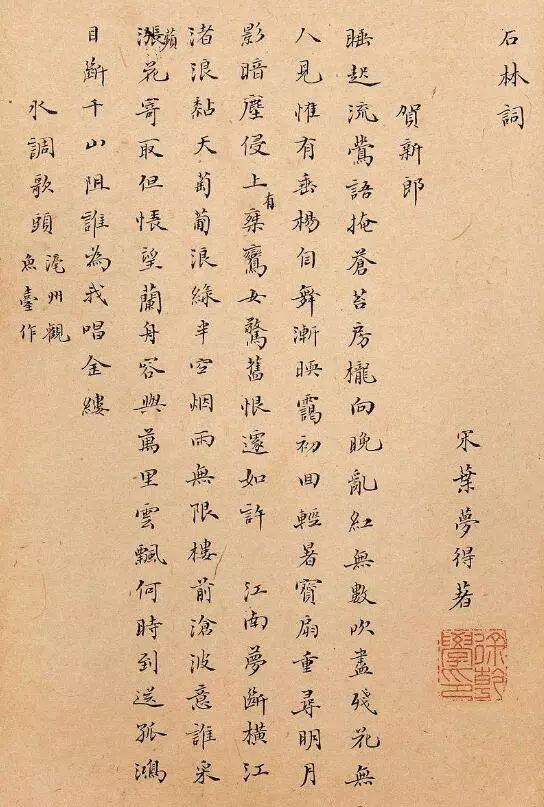 石林詞
宋葉夢得著
徐乾學印
賀新郎
睡起流鶯語掩蒼苔房櫳向晚亂紅無數吹盡殘花無
人見惟有垂楊自舞漸暎靄初回輕暑寶扇重尋明月
影暗塵侵上有乘鸞女驚舊恨遽如許 江南夢斷橫江
渚浪黏天葡萄浪綠半空烟雨無限樓前滄波意誰采
漲蘋花寄取但悵望蘭舟容與萬里雲飄何時到送孤鴻
目斷千山阻誰為我唱金縷
水調歌頭 濠州觀
魚臺作